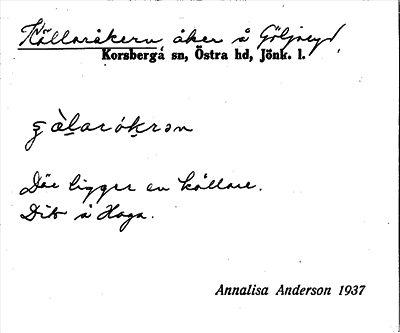 Källaråkern åker å Göljaryd,
Korsberga sn, Östra hd, Jönk. l.
Där ligger en källare.
Dito å Haga.
Annalisa Anderson 1937